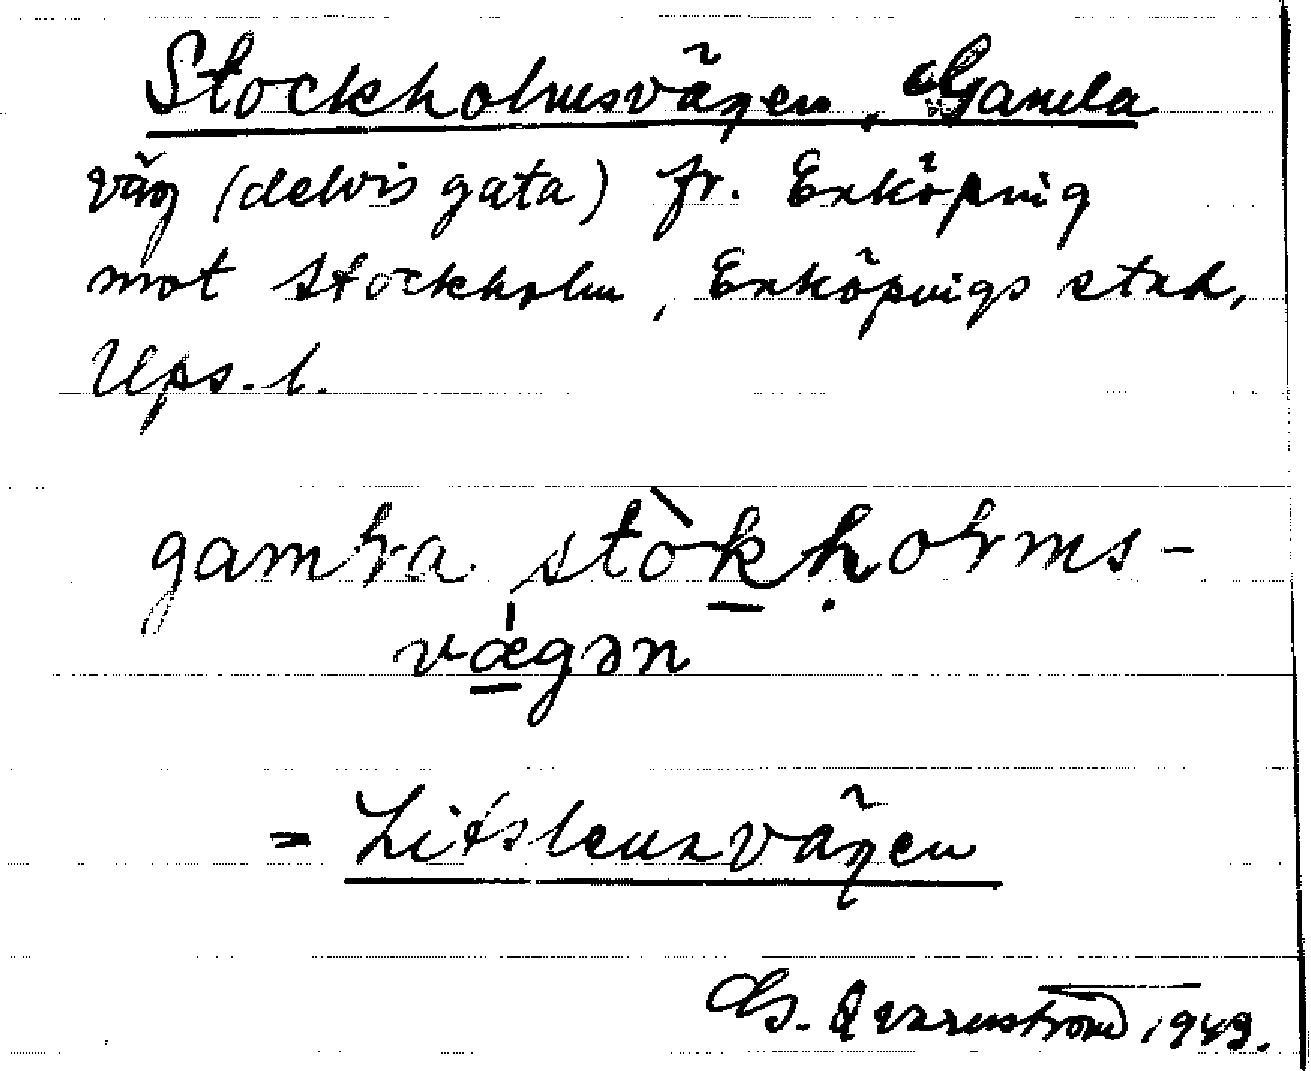 Stockholmsvägen, Gamla
väg (delvis gata) fr. Enköping
mot Stockholm, Enköpings stad,
Ups. l.
gamla stòkholms-
vægən
= Litslenavägen
G. Qvarnström 1949.